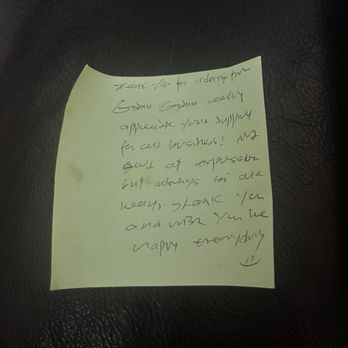 Thank you for ordering from
Gomu Gomu really
appreciate your support
for our business! Not
good at expression
but always in our
hearts. Thank you
and wish you be
happy everyday